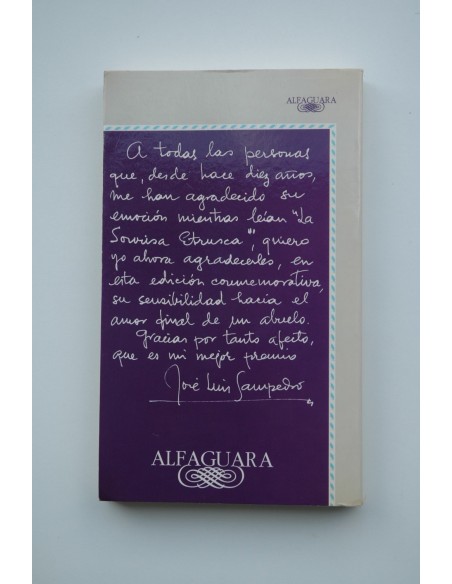 ALFAGUARA
A todas las personas
que, desde hace diez años,
me han agradecido su
emoción mientras leían "La
Sonrisa Etrusca", quiero
yo ahora agradecerles, en
esta edición conmemorativa,
su sensibilidad hacia el
amor final de un abuelo.
Gracias por tanto afecto,
que es mi mejor premio
José Luis Sampedro
ALFAGUARA